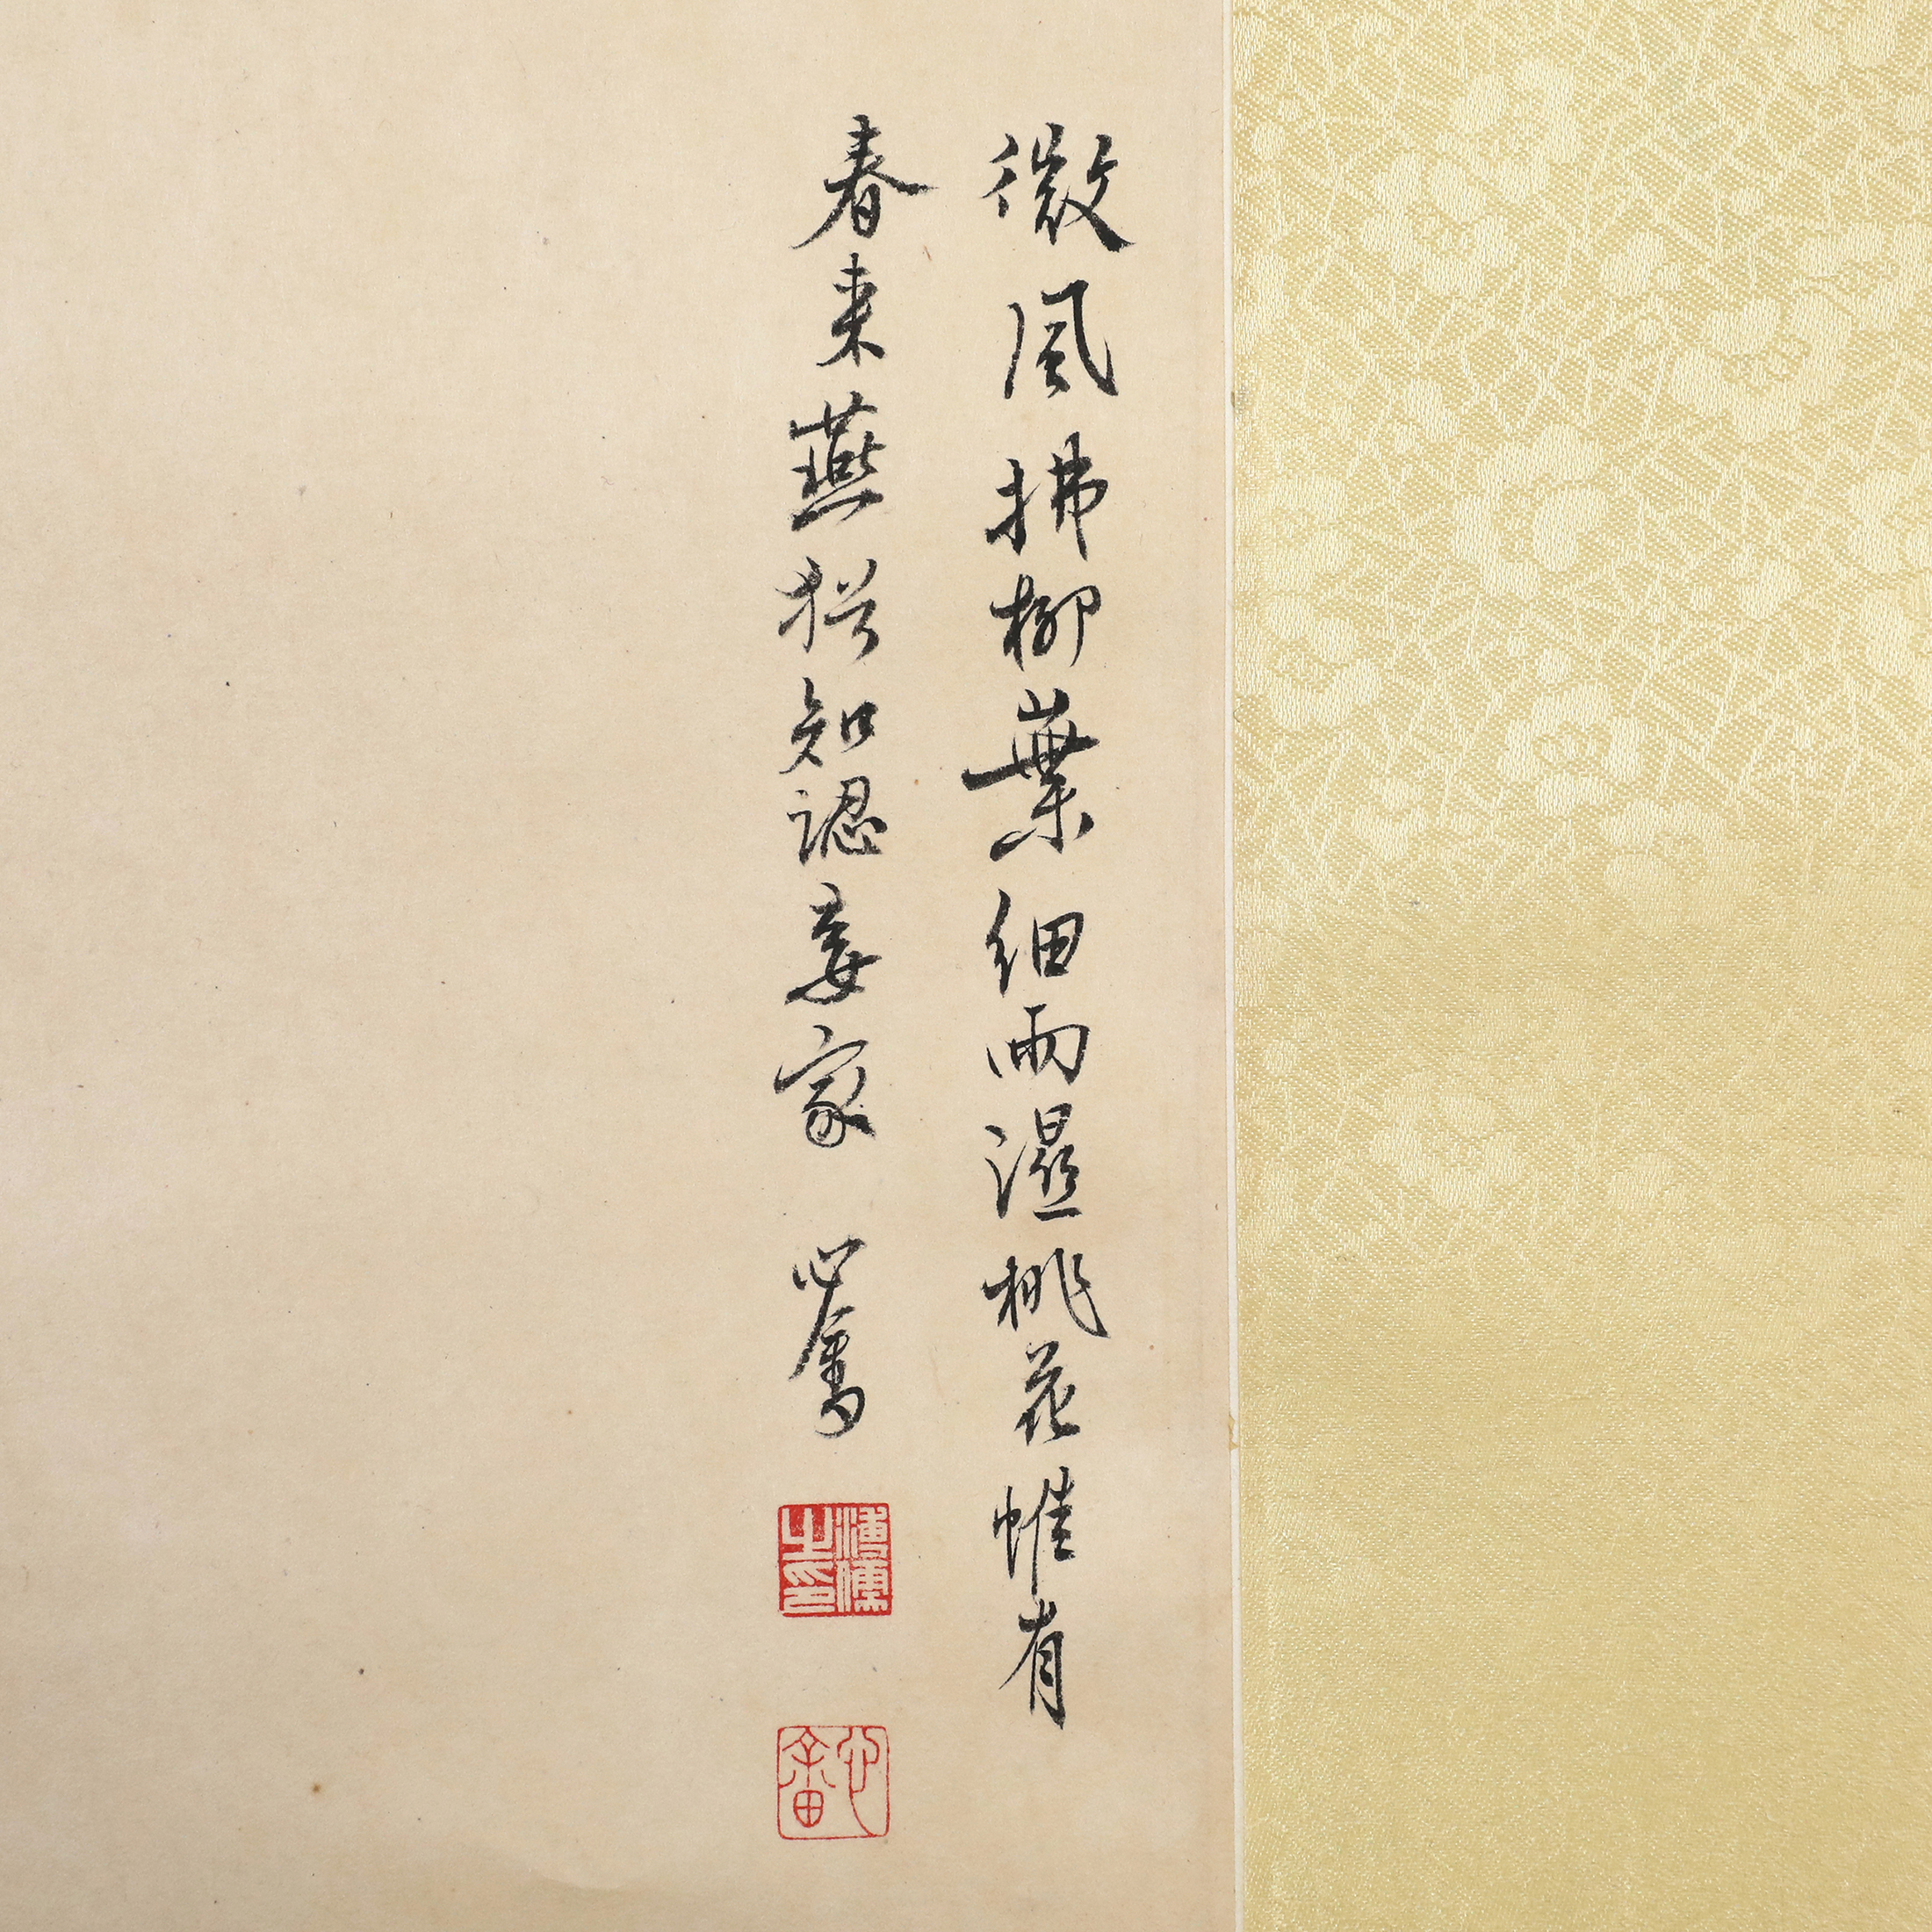 微風拂柳葉細雨濕桃花惟有
春来燕猶知認妾家 心畬
溥儒之印
心畬